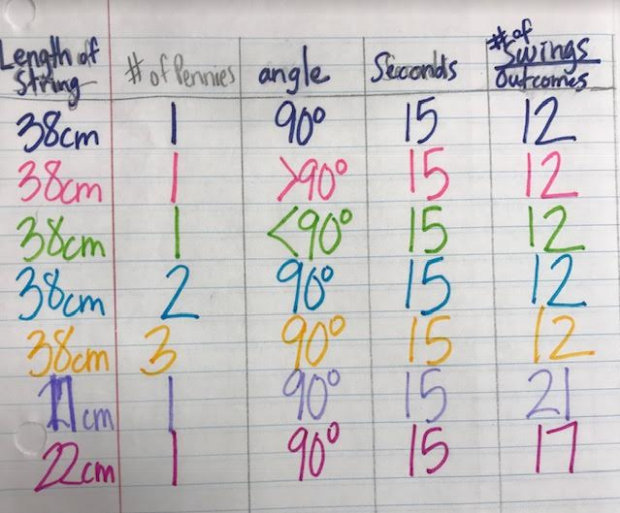 Length of String # of Pennies angle Seconds # of Swings Outcomes
38cm 1 90° 15 12
38cm 1 >90° 15 12
38cm 1 <90° 15 12
38cm 2 90° 15 12
38cm 3 90° 15 12
11cm 1 90° 15 21
22cm 1 90° 15 17